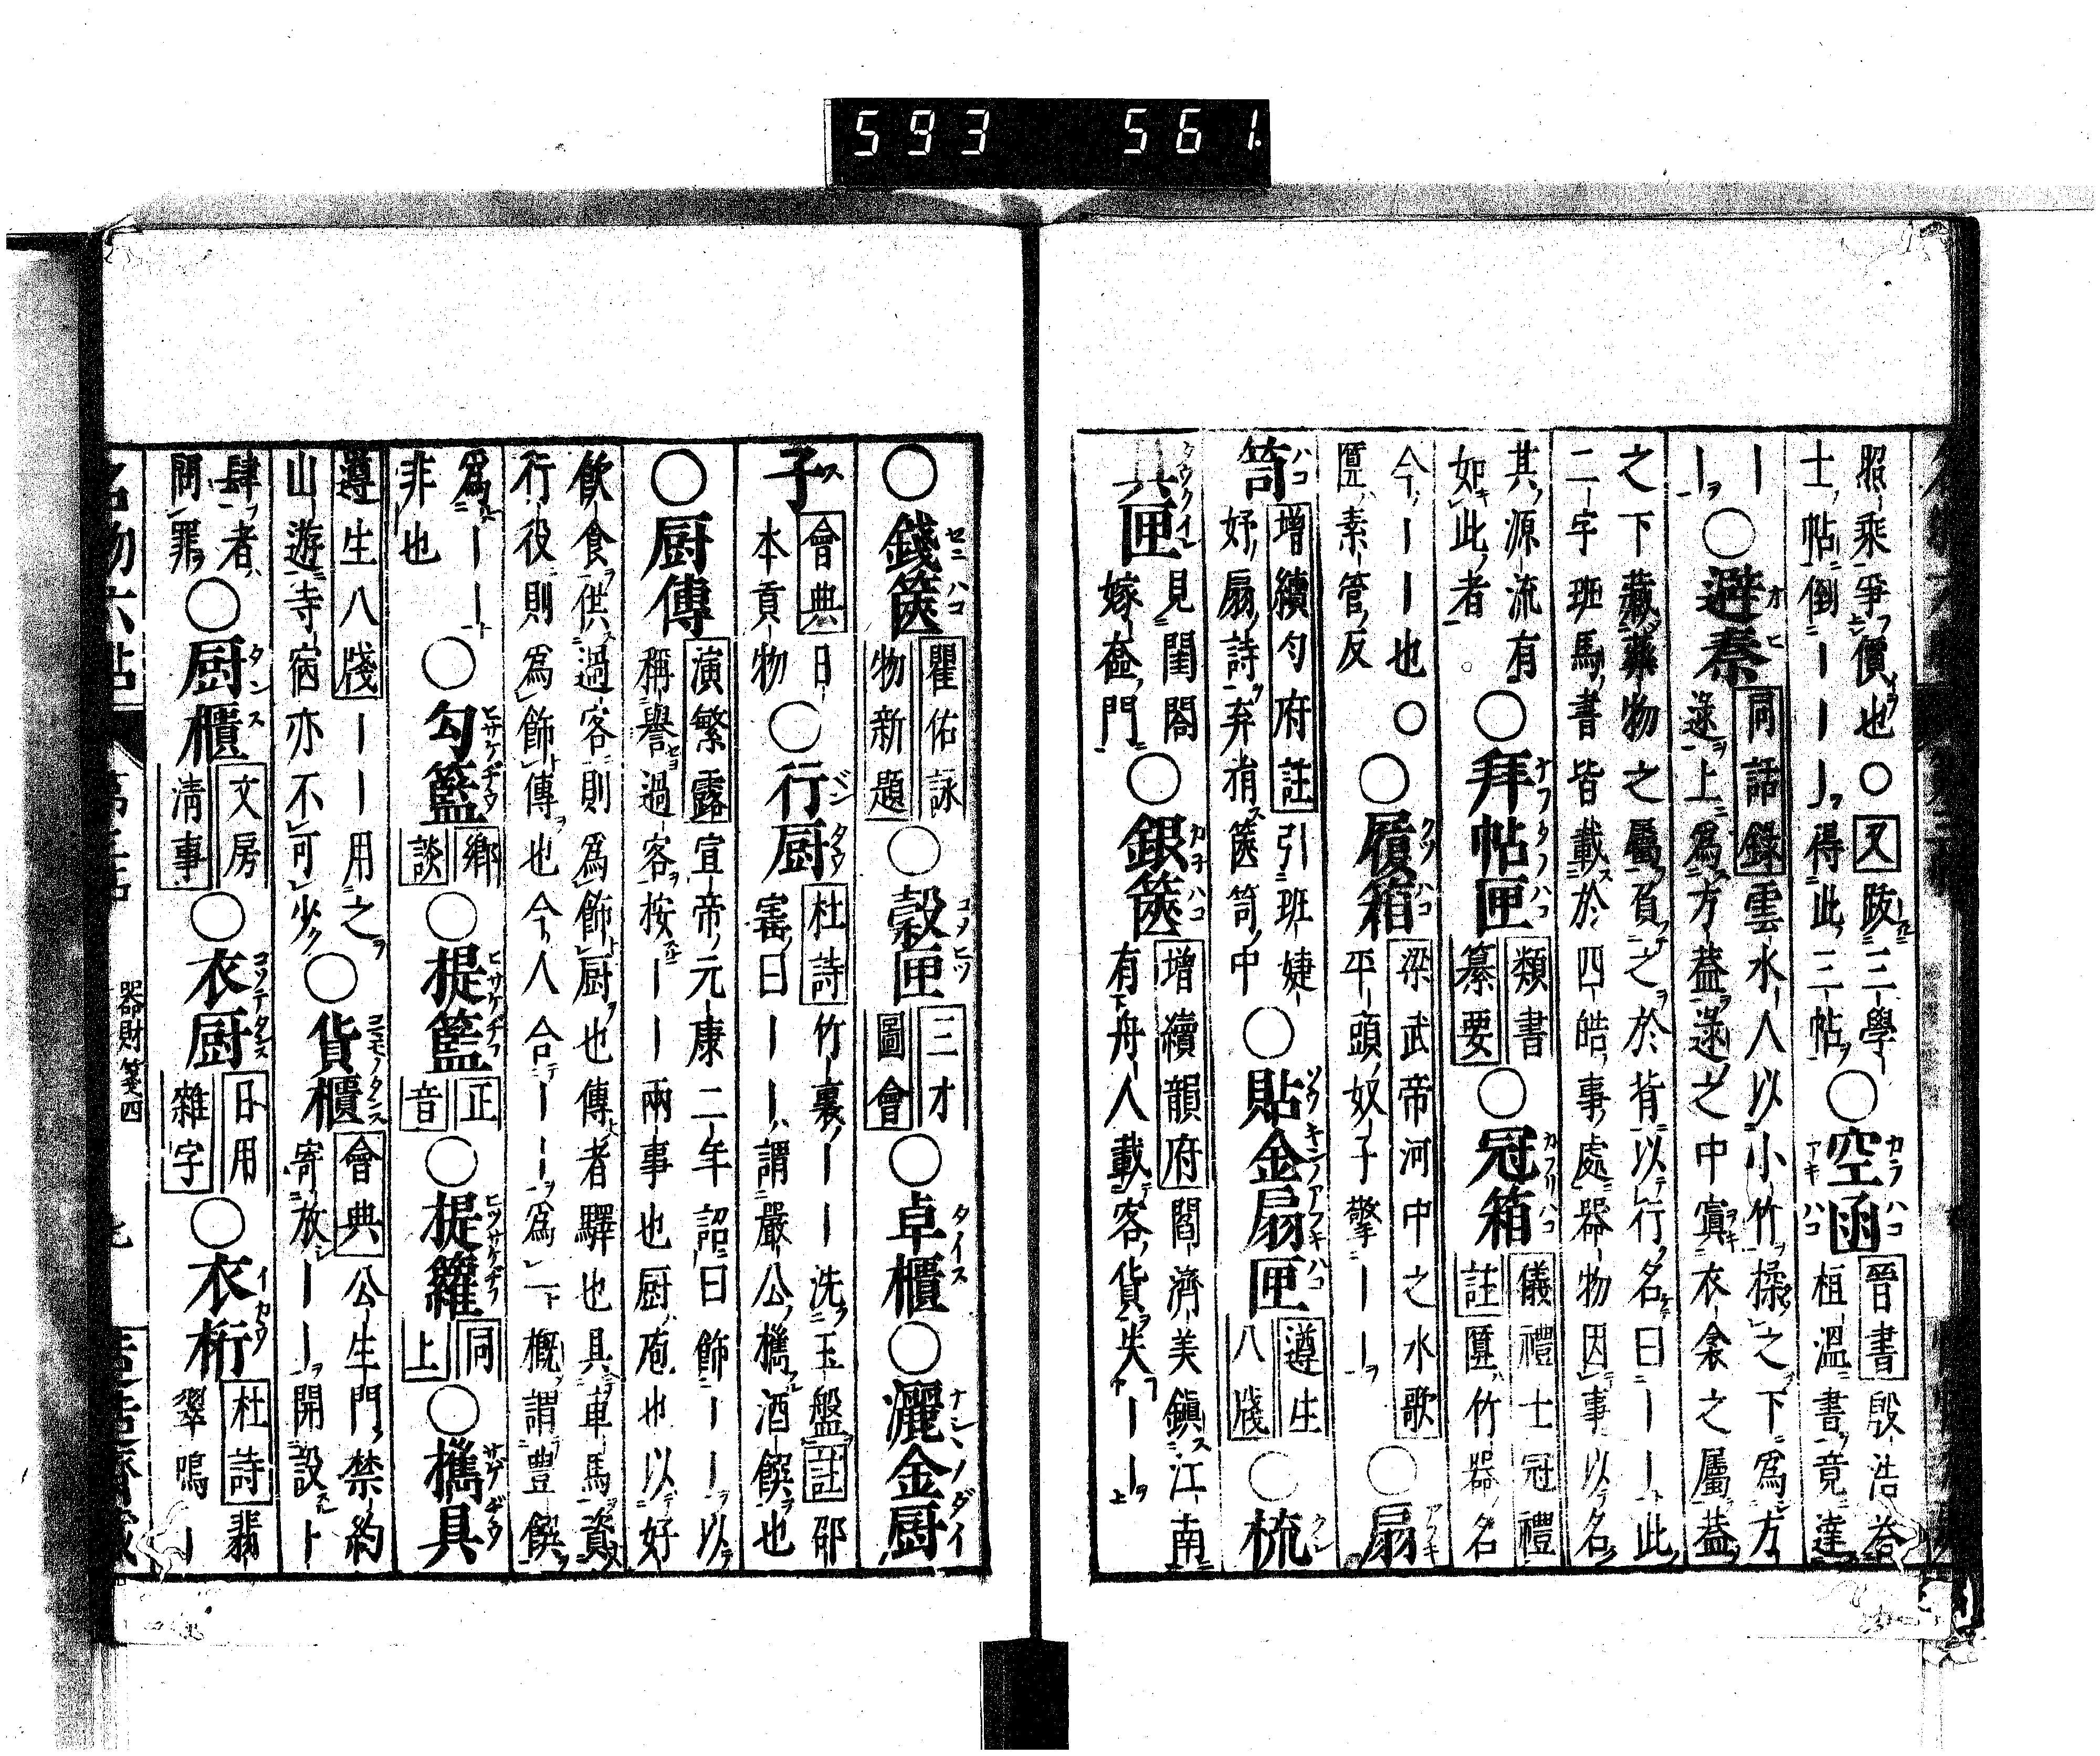 593 561
照乘爭價也○又跋三學
士帖倒｜｜｜得此三帖
○空函
晉書殷浩答
桓溫書竟達
｜
｜
○避秦
同話錄雲水人以小竹操之下爲方
遂上爲方蓋遂之中寘衣衾之屬蓋
之下藏藥物之屬負之於背以行名曰｜｜此
二字班馬書皆載於四皓事處器物因事以名
其源流有
如此者。
○拜帖匣
類書
纂要
○冠箱
儀禮士冠禮
註匴竹器名
今｜｜也○
匴素管反
○履箱
梁武帝河中之水歌
平頭奴子擎｜｜
○扇
笥
增續勻府註引班婕
妤扇詩弃捐篋笥中
○貼金扇匣
遵生
八牋
○梳
具匣
見閨閤
嫁奩門
○銀篋
增續韻府閻濟美鎭江南
有舟人載客貨失｜｜
○錢篋
瞿佑詠
物新題
○穀匣
三才
圖會
○卓櫃○灑金厨
子
會典日
本貢物
○行厨
杜詩竹裏｜｜洗玉盤註邵
寚曰｜｜謂嚴公攜酒饌也
○厨傳
演繁露宣帝元康二年詔曰飾｜｜以
稱譽過客按｜｜兩事也厨庖也以好
飲食供過客則爲飾厨也傳者驛也具車馬資
行役則爲飾傳也今人合｜｜爲一概謂豊饌
爲｜｜
非也
○勾籃
鄉
談
○提籃
正
音
○提籮
同
上
○攜具
遵生八牋｜｜用之
山遊寺宿亦不可少
○貨櫃
會典公生門禁約
寄放｜｜開設卜
肆者
問罪
○厨櫃
文房
清事
○衣厨
日用
雜字
○衣桁
杜詩翡
翠鳴｜
名物六帖
器財箋四